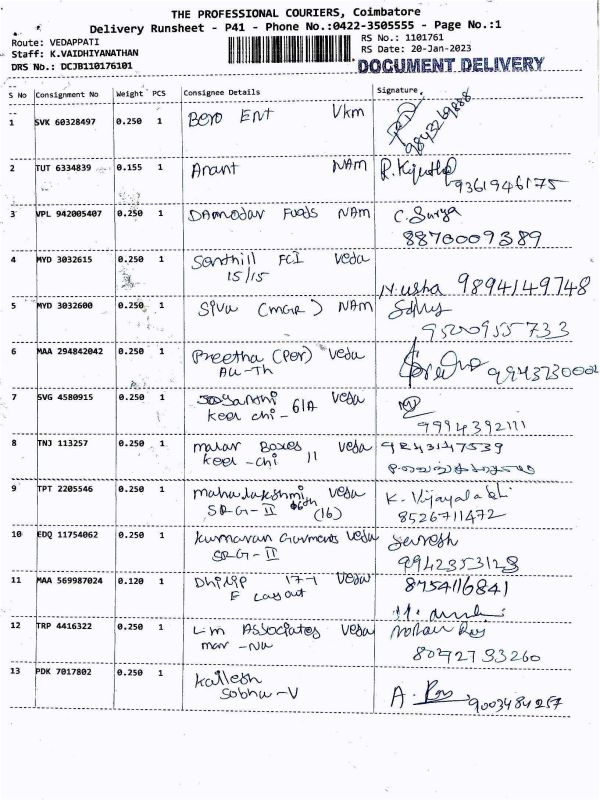 THE PROFESSIONAL COURIERS, Coimbatore
Delivery Runsheet - P41 - Phone No.:0422-3505555 - Page No.:1
Route: VEDAPPATI
Staff: K.VAIDHIYANATHAN
DRS No.: DCJB110176101
RS No.: 1101761
RS Date: 20-Jan-2023
DOCUMENT DELIVERY
S No Consignment No Weight PCS Consignee Details Signature
1 SVK 60328497 0.250 1 Bero Ent Vkm
9843269888
2 TUT 6334839 0.155 1 Anant NAm
9361946175
3 VPL 942005407 0.250 1 Damodar Fuods NAm C. Surya
8870009389
4 MYD 3032615 0.250 1 Senthill FCI Veda
15/15
N. usha 9894149748
5 MYD 3032600 0.250 1 Siva (MGR) NAm
9500955733
6 MAA 294842042 0.250 1 Preetha (Per) Veda
Au-Th
7 SVG 4580915 0.250 1 61A Veda
keel chi -
9994392111
8 TNJ 113257 0.250 1 malar Boxes Veda 9843147539
keel -chi 11
9 TPT 2205546 0.250 1 mahalakshmi Veda
SRG-II (16)
8526711472
10 EDQ 11754062 0.250 1 kumaran Garments Veda Suresh
SRG-II
11 MAA 569987024 0.120 1 Dhilip 177 Veda 8754116841
F Layout
12 TRP 4416322 0.250 1 L-m Associates Veda
mar -Na
13 PDK 7017802 0.250 1 kailesh
Sobha-V
9003484257